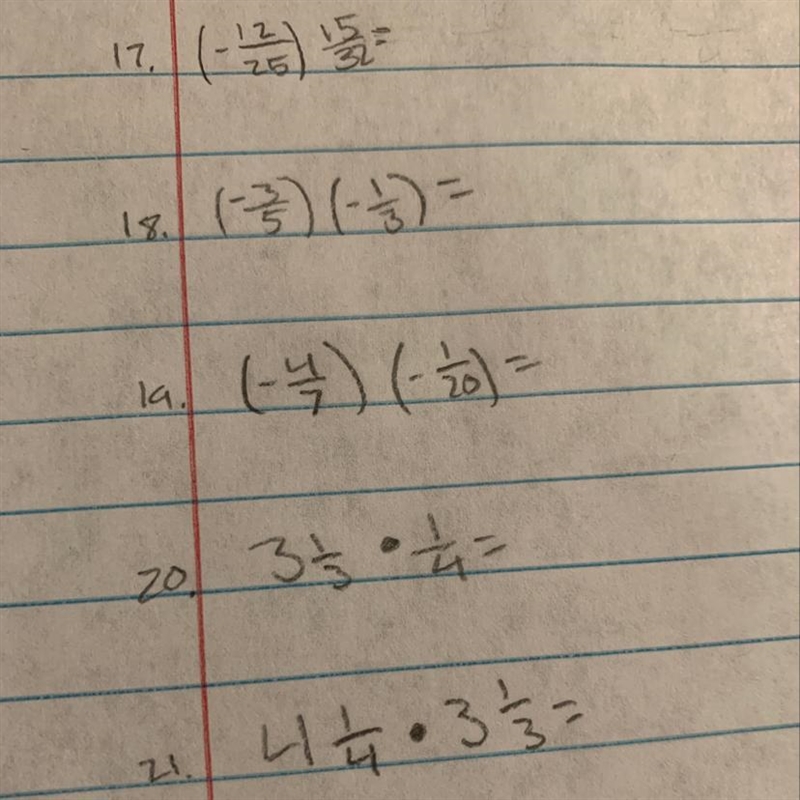 17. (-12/25) 15/32=
18. (-3/5)(-1/3)=
19. (-4/7)(-1/20)=
20. 3 1/3 • 1/4=
21. 4 1/4 • 3 1/3=